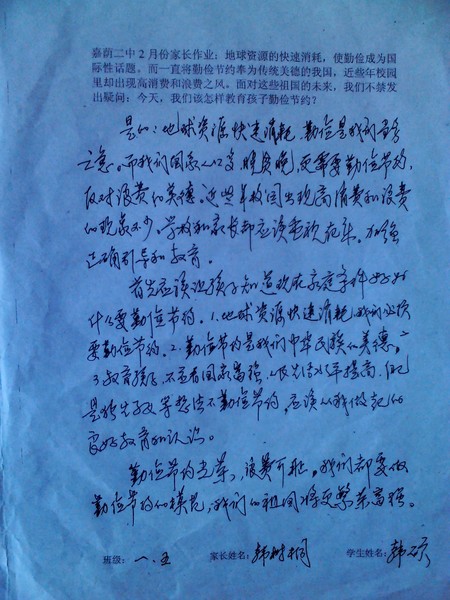 嘉荫二中2月份家长作业：地球资源的快速消耗，使勤俭成为国
际性话题。而一直将勤俭节约奉为传统美德的我国，近些年校园
里却出现高消费和浪费之风。面对这些祖国的未来，我们不禁发
出疑问：今天，我们该怎样教育孩子勤俭节约？
是的：地球资源快速消耗，勤俭是我们当务
之急。而我们国家人口多，更需要勤俭节约，
反对浪费的美德。近些年校园出现高消费和浪费
的现象不少，学校和家长都应该重视起来。加强
正确引导和教育。
首先应该让孩子知道现在家庭条件好为
什么要勤俭节约。1.地球资源快速消耗我们必须
要勤俭节约。2.勤俭节约是我们中华民族的美德。
3.教育孩子不要看国家富强，人民生活水平提高，
等想法不勤俭节约，应该从我做起的
更好教育和认识。
勤俭节约光荣，浪费可耻。我们都要做
勤俭节约的模范，我们的祖国将更繁荣富强。
班级：一.五 家长姓名：韩树桐 学生姓名：韩硕